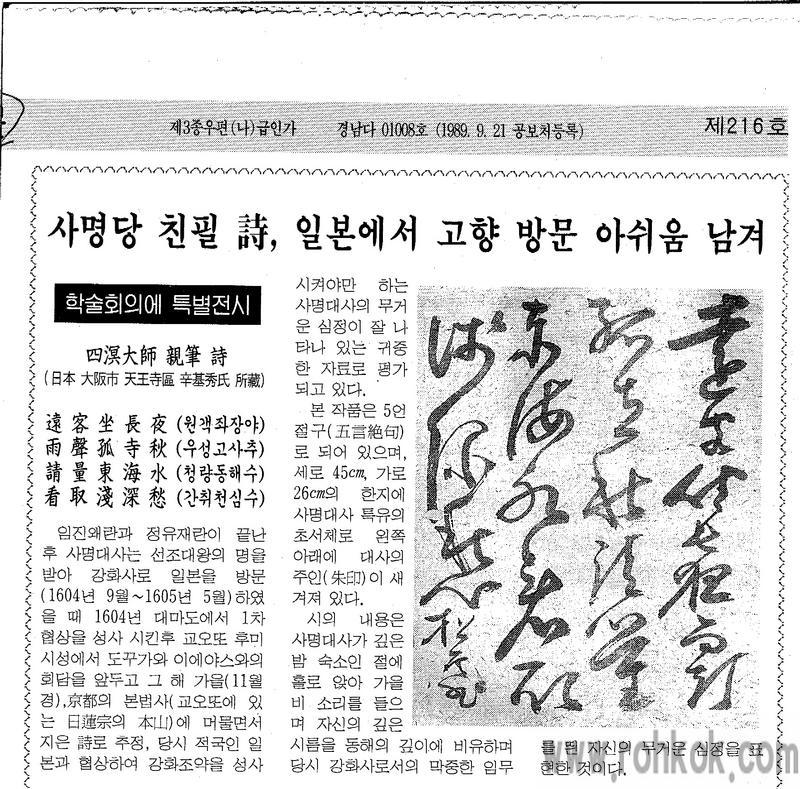 제3종우편(나)급인가 경남다 01008호 (1989. 9. 21 공보처등록) 제216호
사명당 친필 詩, 일본에서 고향 방문 아쉬움 남겨
학술회의에 특별전시
四溟大師 親筆 詩
(日本 大阪市 天王寺區 辛基秀氏 所藏)
遠客坐長夜 (원객좌장야)
雨聲孤寺秋 (우성고사추)
請量東海水 (청량동해수)
看取淺深愁 (간취천심수)
임진왜란과 정유재란이 끝난
후 사명대사는 선조대왕의 명을
받아 강화사로 일본을 방문
(1604년 9월~1605년 5월)하였
을 때 1604년 대마도에서 1차
협상을 성사 시킨후 교오또 후미
시성에서 도꾸가와 이에야스와의
회담을 앞두고 그 해 가을(11월
경),京都의 본법사(교오또에 있
는 日蓮宗의 本山)에 머물면서
지은 詩로 추정, 당시 적국인 일
본과 협상하여 강화조약을 성사
시켜야만 하는
사명대사의 무거
운 심정이 잘 나
타나 있는 귀중
한 자료로 평가
되고 있다.
본 작품은 5언
절구(五言絶句)
로 되어 있으며,
세로 45cm, 가로
26cm의 한지에
사명대사 특유의
초서체로 왼쪽
아래에 대사의
주인(朱印)이 새
겨져 있다.
시의 내용은
사명대사가 깊은
밤 숙소인 절에
홀로 앉아 가을
비 소리를 들으
며 자신의 깊은
시름을 동해의 깊이에 비유하며
당시 강화사로서의 막중한 임무
를 띈 자신의 무거운 심정을 표
현한 것이다.
www.rohkok.com